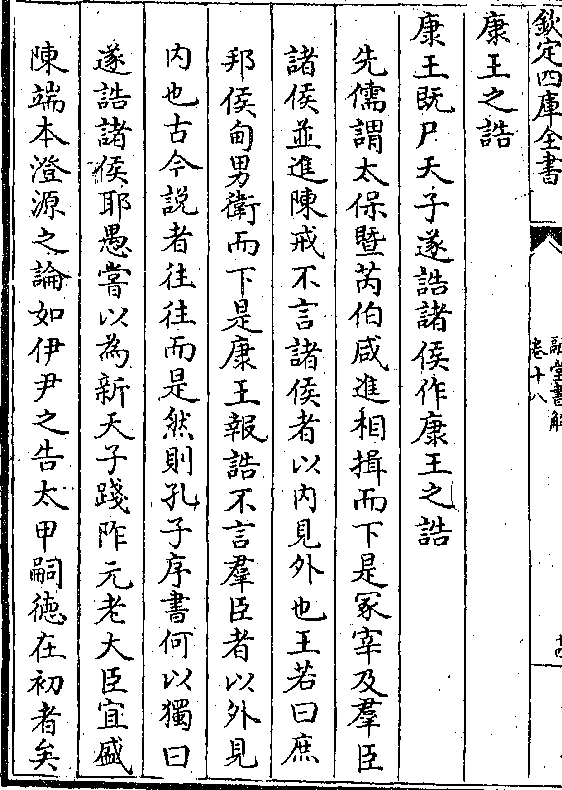 欽定四庫全書
融堂書解
卷十八
康王之誥
康王既尸天子遂誥諸侯作康王之誥
先儒謂太保暨芮伯咸進相揖而下是冢宰及羣臣
諸侯並進陳戒不言諸侯者以内見外也王若曰庶
邦侯甸男衛而下是康王報誥不言羣臣者以外見
内也古今説者往往而是然則孔子序書何以獨曰
遂誥諸侯耶愚嘗以為新天子踐阼元老大臣宜盛
陳端本澄源之論如伊尹之告太甲嗣德在初者矣